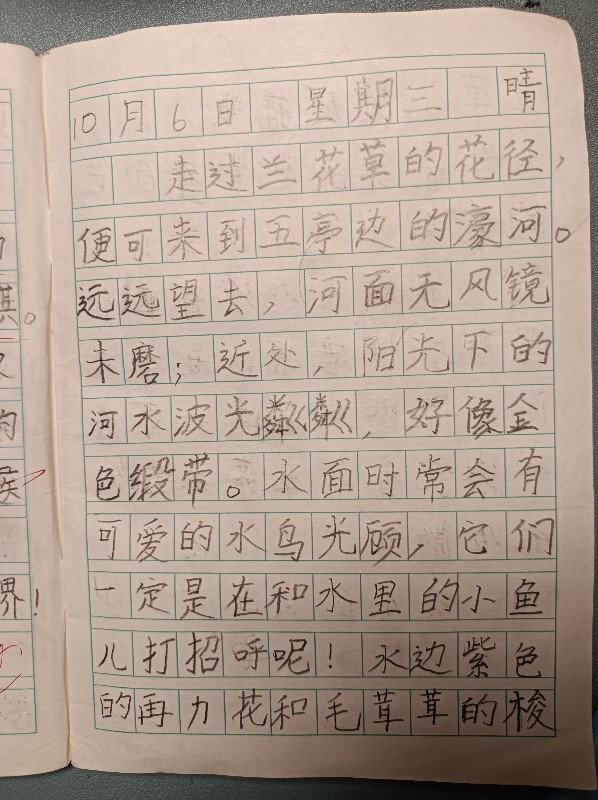 10月6日 星期三 晴
走过兰花草的花径，
便可来到五亭边的濠河。
远远望去，河面无风镜
未磨；近处，阳光下的
河水波光粼粼，好像金
色缎带。水面时常会有
可爱的水鸟光顾，它们
一定是在和水里的小鱼
儿打招呼呢！水边紫色
的再力花和毛茸茸的梭